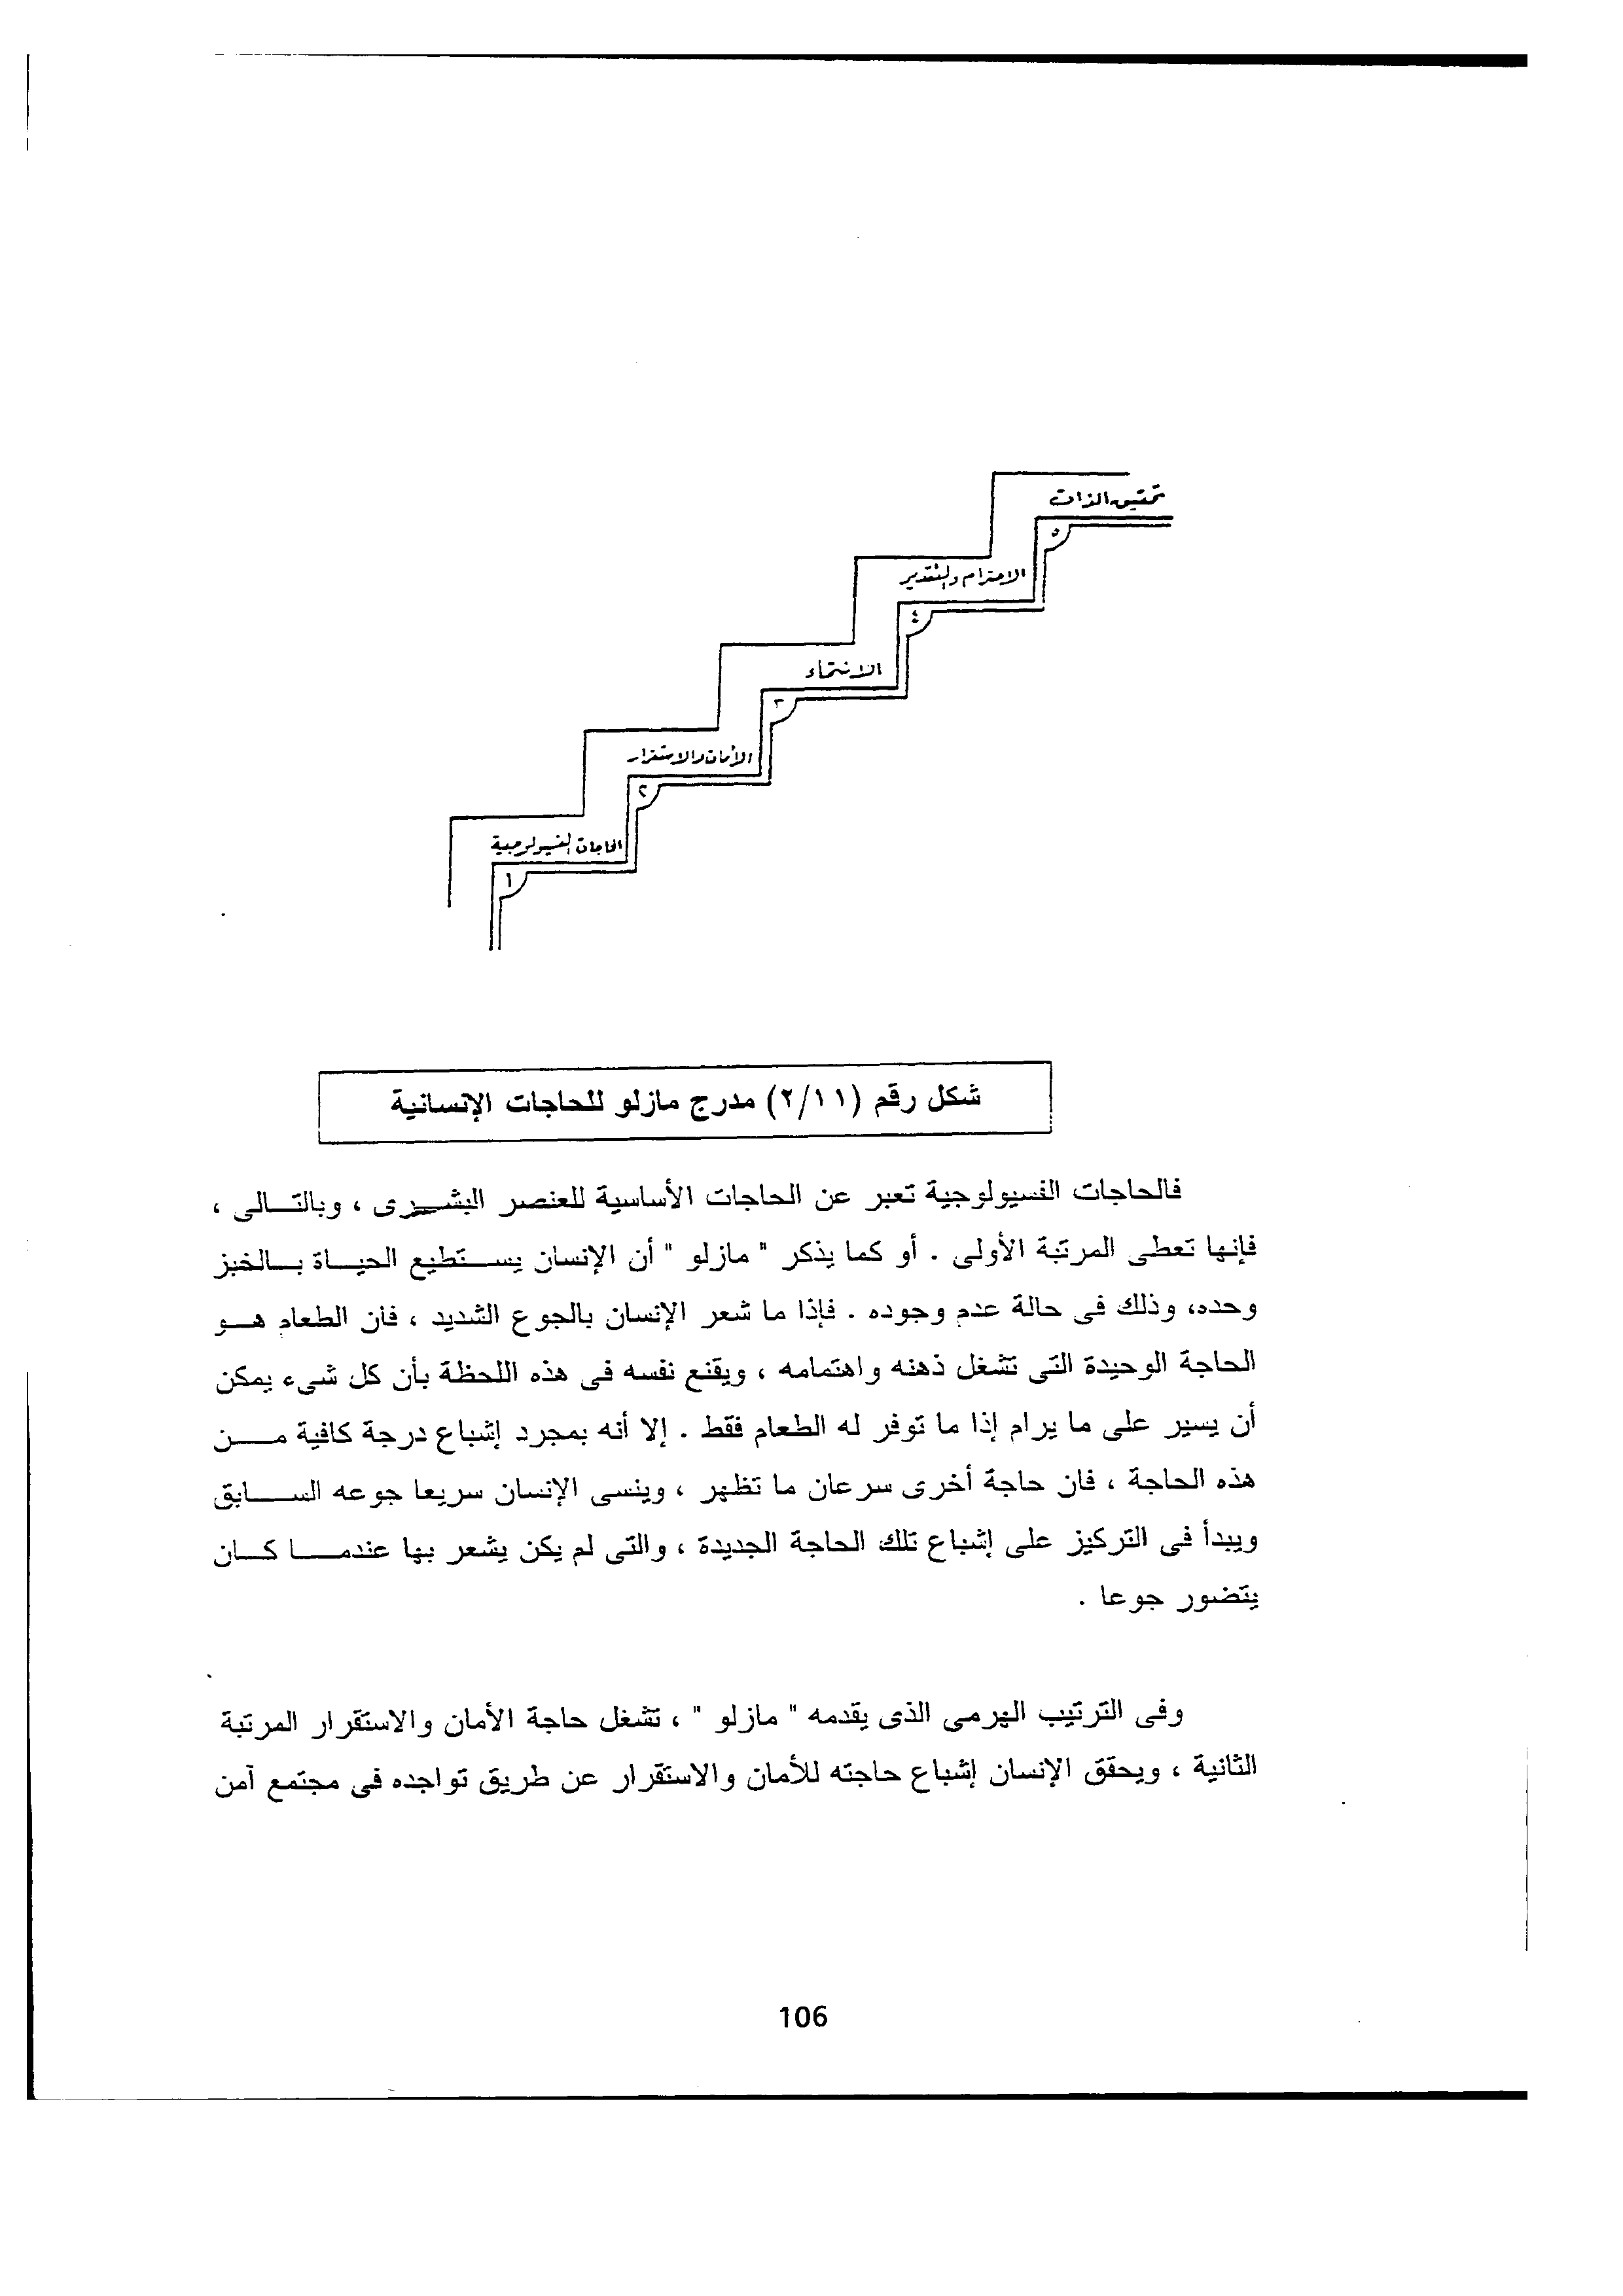 تحقيق الذات
٥
الاحترام والتقدير
٤
الانتماء
٣
الأمان والاستقرار
٢
الحاجات الفسيولوجية
١
شكل رقم (٢/١١) مدرج مازلو للحاجات الإنسانية
فالحاجات الفسيولوجية تعبر عن الحاجات الأساسية للعنصر البشـرى ، وبالتـالى ،
فإنها تعطى المرتبة الأولى . أو كما يذكر " مازلو " أن الإنسان يسـتطيع الحيـاة بـالخبز
وحده، وذلك فى حالة عدم وجوده . فإذا ما شعر الإنسان بالجوع الشديد ، فان الطعام هـو
الحاجة الوحيدة التى تشغل ذهنه واهتمامه ، ويقنع نفسه فى هذه اللحظة بأن كل شىء يمكن
أن يسير على ما يرام إذا ما توفر له الطعام فقط . إلا أنه بمجرد إشباع درجة كافية مـن
هذه الحاجة ، فان حاجة أخرى سرعان ما تظهر ، وينسى الإنسان سريعا جوعه السـابق
ويبدأ فى التركيز على إشباع تلك الحاجة الجديدة ، والتى لم يكن يشعر بها عندمـا كـان
يتضور جوعا .
وفى الترتيب الهرمى الذى يقدمه " مازلو " ، تشغل حاجة الأمان والاستقرار المرتبة
الثانية ، ويحقق الإنسان إشباع حاجته للأمان والاستقرار عن طريق تواجده فى مجتمع آمن
106